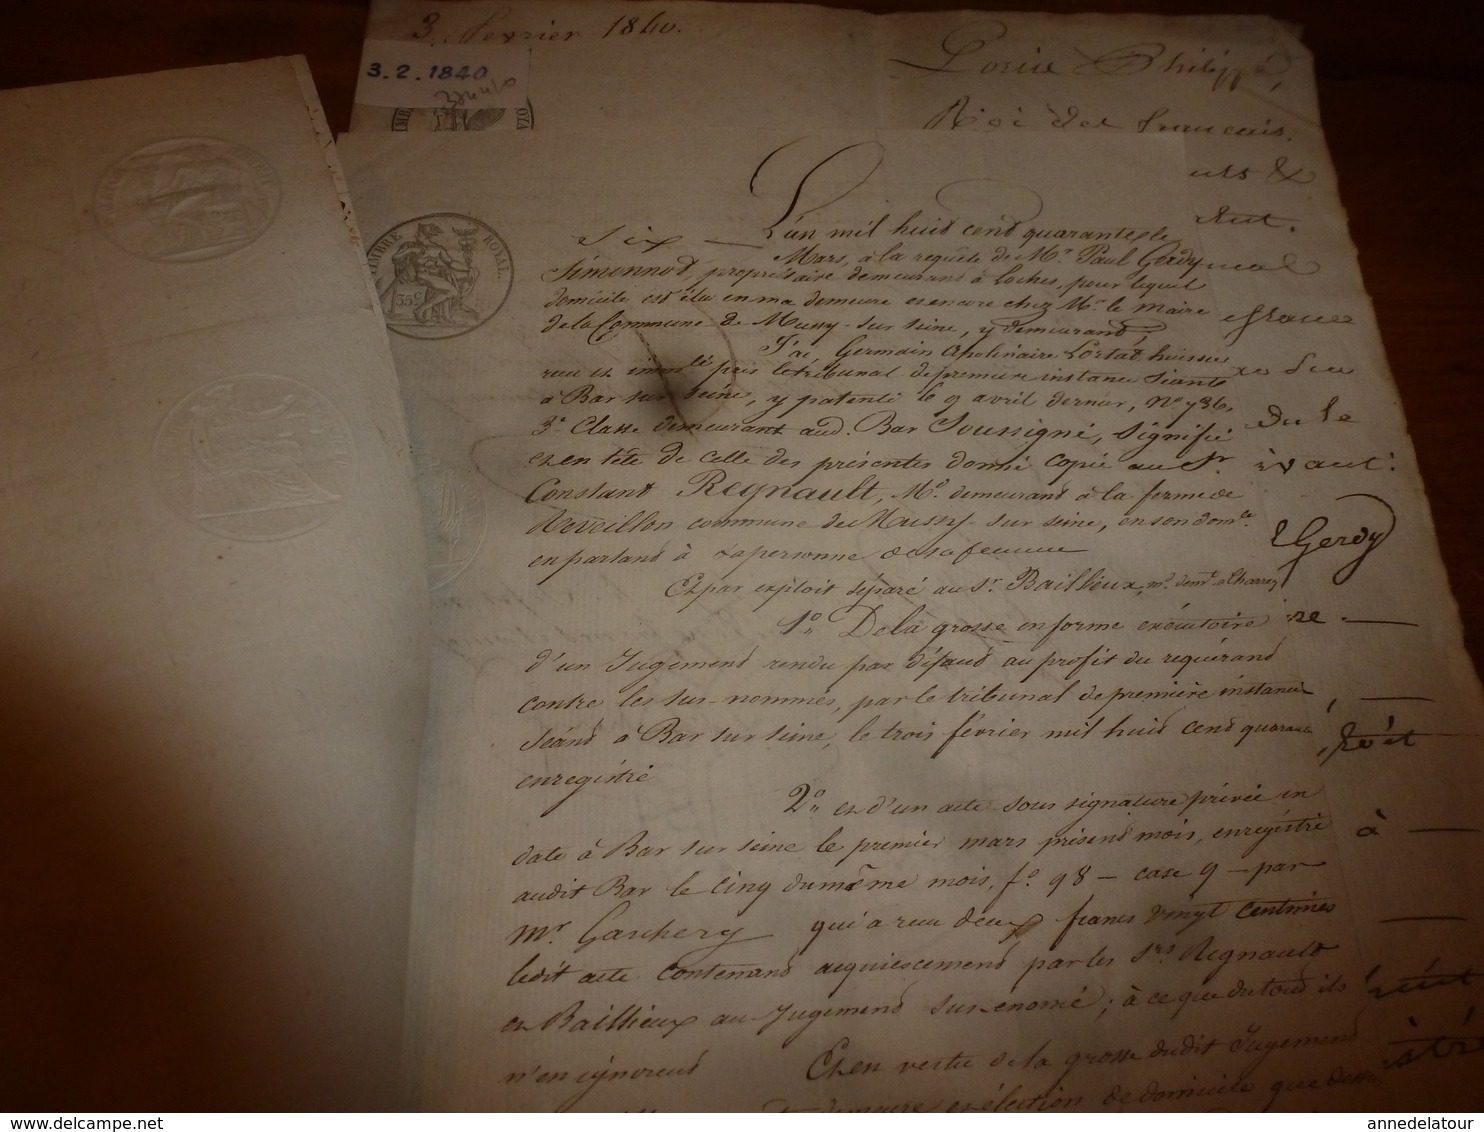 3. février 1840.
3.2.1840
Louis Philippe,
Roi des français,
TIMBRE ROYAL.
35c
L'un mil huit cent quarante, le
six — Mars, à la requête de Mr. Paul Gerdy
Simonnot, propriétaire demeurant à Loches, pour lequel
domicile est élu en ma demeure et encore chez Mr. le Maire
de la Commune de Mussy-sur-Seine, y demeurant,
J'ai, Germain Apolinaire Lortat huissier
reçu et immlé près le tribunal de première instance séante
à Bar sur Seine, y patenté le 9 avril dernier, No 736,
3e Classe demeurant aud. Bar Soussigné, Signifié
et en tête de celle des présentes donné copie au Sr
Constant Regnault, Md. demeurant à la ferme de
Reveillon commune de Mussy-sur-seine, en son domle
en parlant à la personne de sa femme
Et par exploit séparé au Sr. Baillieux, md. demt. à Charrey
1o De la grosse en forme exécutoire
d'un Jugement rendu par défaut au profit du requérant
contre les sus-nommés, par le tribunal de première instance
séant à Bar sur seine, le trois février mil huit cent quarante
enregistré
2o et d'un acte sous signature privée en
date à Bar sur seine le premier mars présent mois, enregistré
audit Bar le cinq du même mois, fo 98 — case 9 — par
Mr qui a reçu deux francs vingt centimes
ledit acte contenant acquiescement par les Srs Regnault
et Baillieux au Jugement sus-énoncé; à ce que du tout ils
n'en ignorent Et en vertu de la grosse dudit Jugement
demeure et élection de domicile que dessus
du le
Gerdy
re —
à —
annedelatour